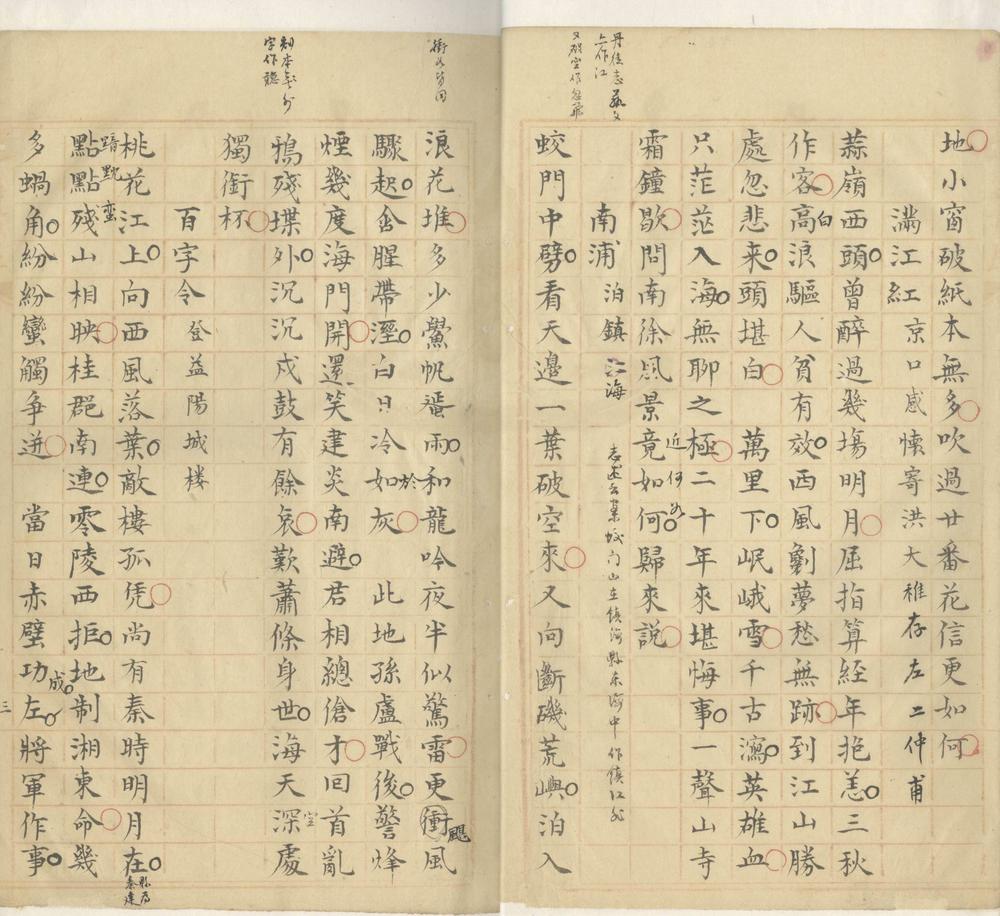 地小窗破紙本無多吹過廿番花信更如何
滿江紅 京口感懷寄洪大稚存左二仲甫
蒜嶺西頭曾醉過幾塲明月屈指算經年抱恙三秋
作客高浪驅人貧有效西風劖夢愁無跡到江山勝
白
處忽悲來頭堪白萬里下岷峨雪千古瀉英雄血
只茫茫入海無聊之極二十年來堪悔事一聲山寺
霜鐘歇問南徐風景竟如何歸來說
近何如
南浦 泊鎮海
蛟門山在鎮海縣東海中作鎮江
蛟門中劈看天邊一葉破空來又向斷磯荒嶼泊入
又破空作忽飛
浪花堆多少黌帆蜑雨和龍吟夜半似驚雷更衝風
颶
驟起畬腥帶溼白日冷如灰 此地孫盧戰後警烽
於
煙幾度海門開還笑建炎南避君相總傖才回首亂
鴉殘堞外沉沉戍鼓有餘哀歎蕭條身世海天深處
空
刻本
字作聽
獨銜杯
百字令 登益陽城樓
桃花江上向西風落葉敵樓孤凭尚有秦時明月在
點點殘山相映桂郡南連零陵西拒地制湘東命幾
多蝸角紛紛蠻觸爭迸 當日赤壁功左將軍作事
成
三